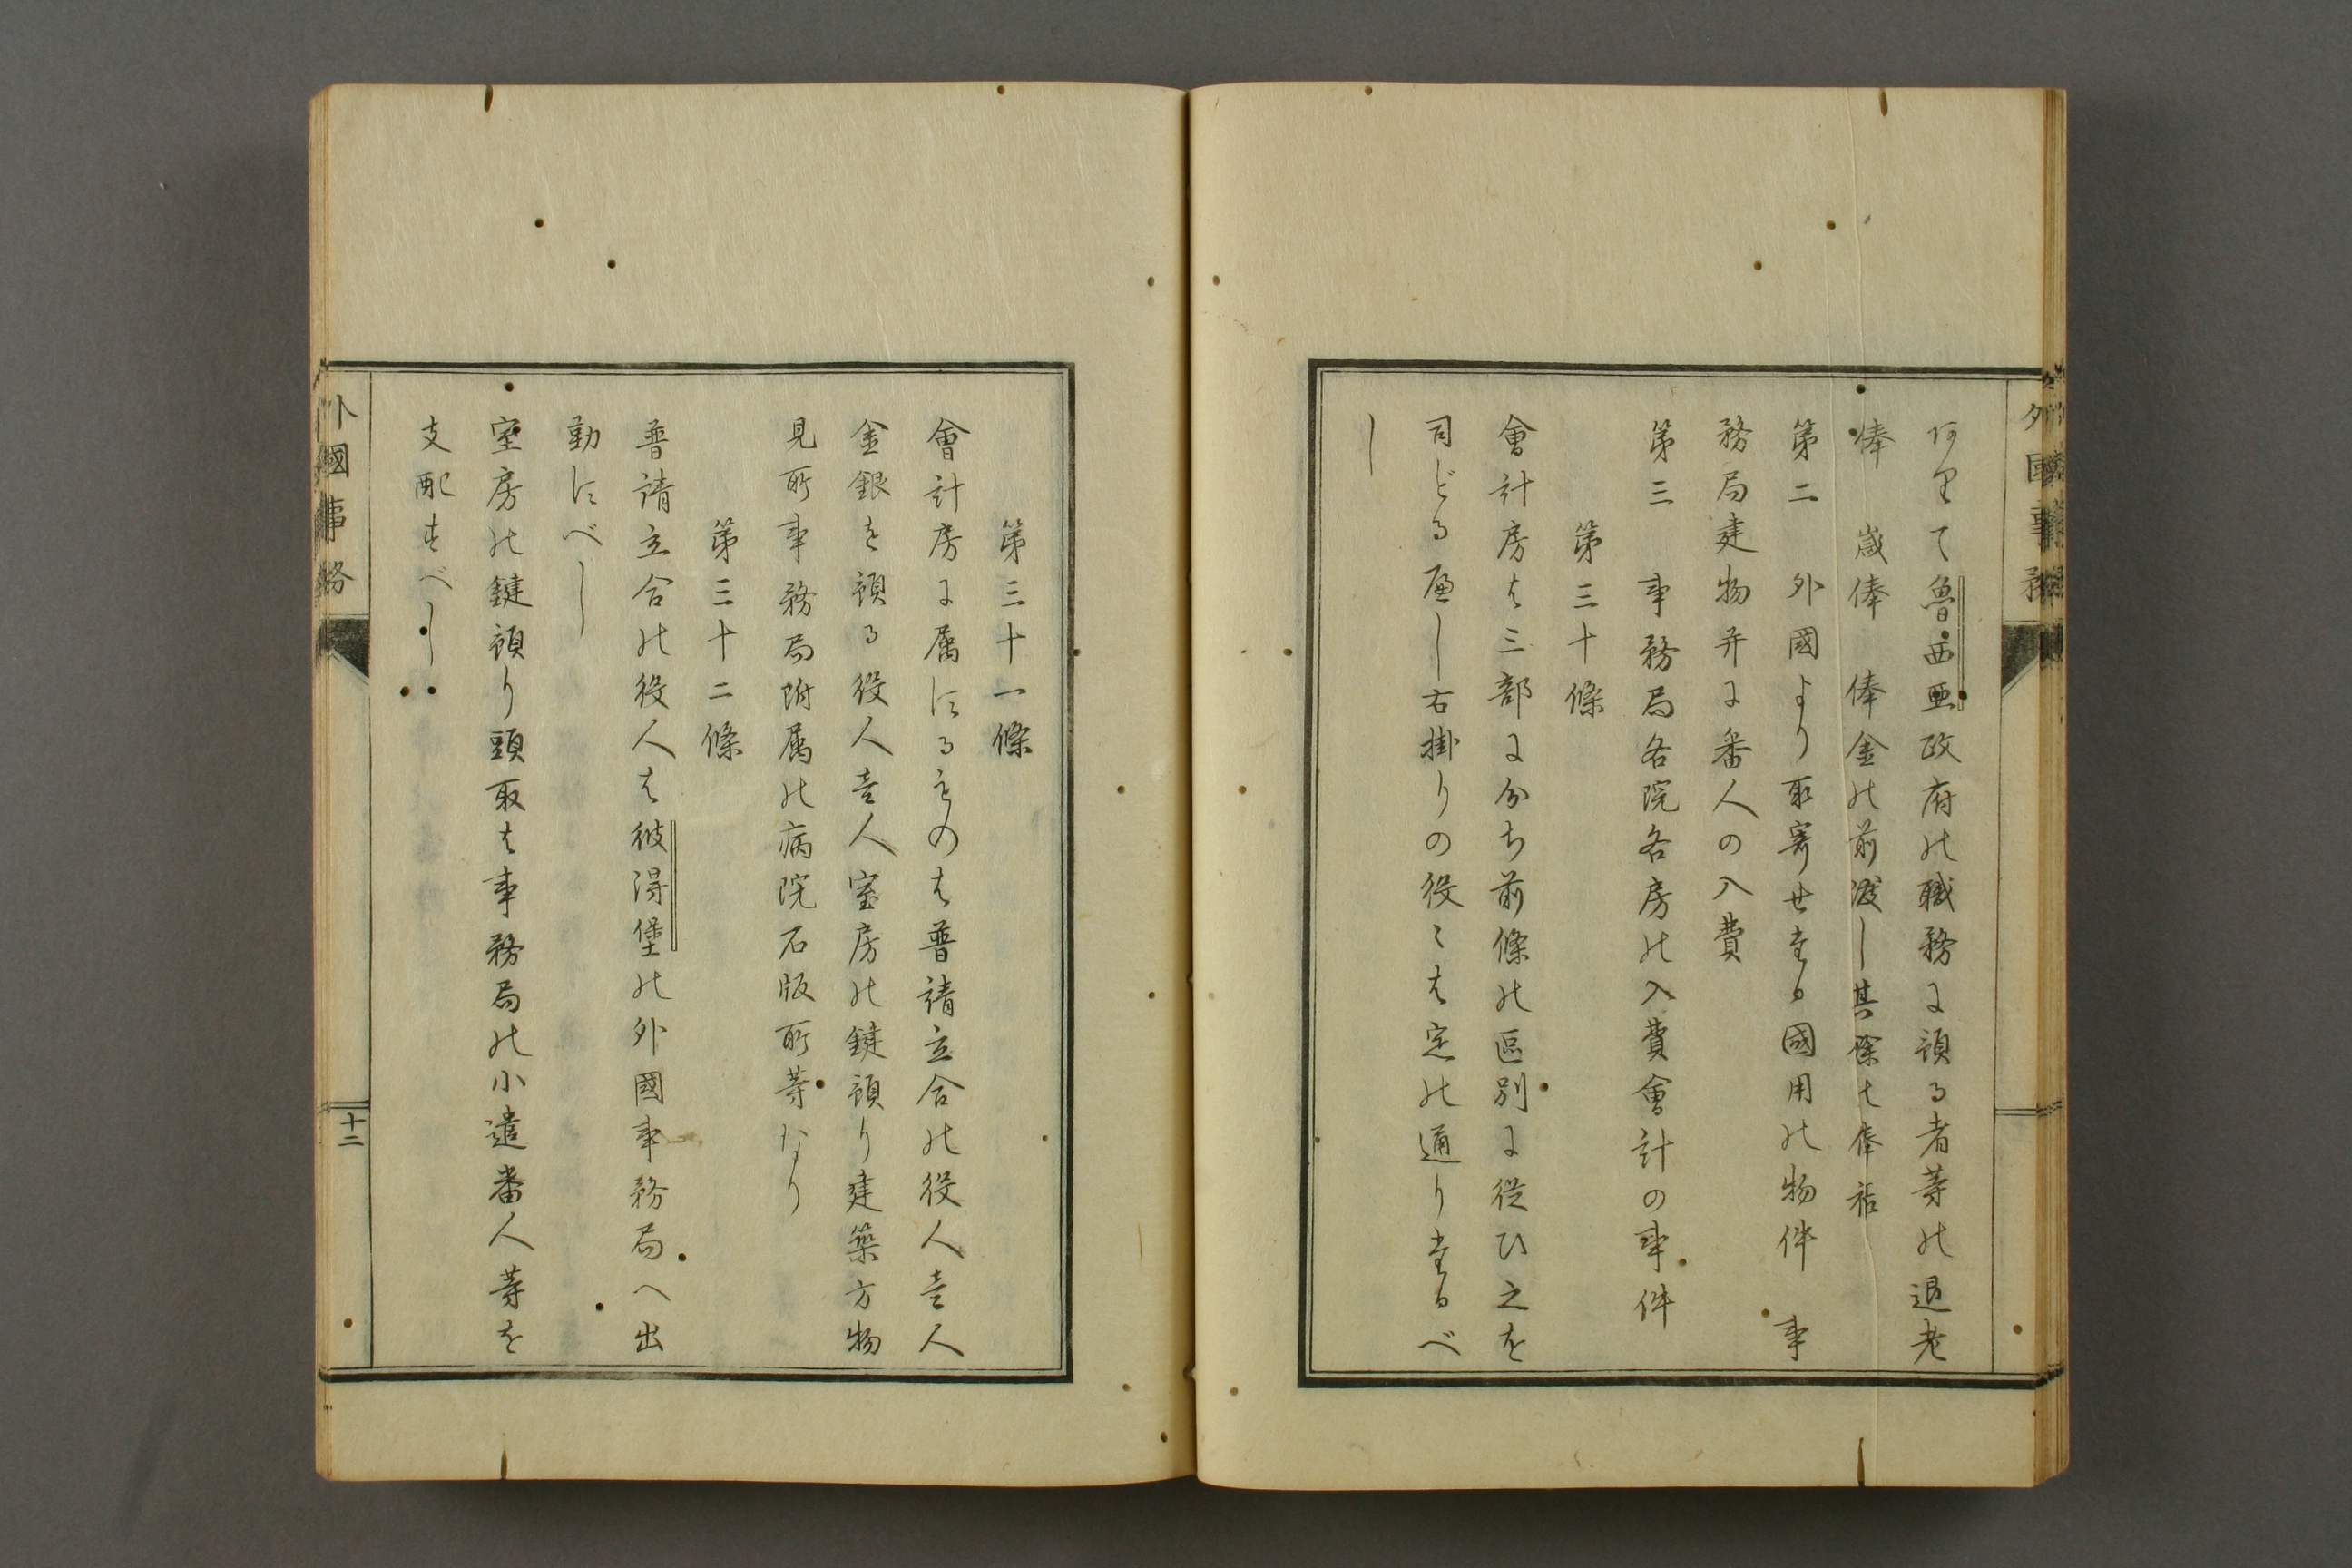 外國事務
ありて魯西亜政府の職務に預る者等の退老
俸　歳俸　俸金の前渡し其餘の俸祐
第二　外國より取寄せたる國用の物件　事
務局建物并に番人の入費
第三　事務局各院各房の入費會計の事件
第三十條
會計房は三部に分ち前條の區別に従ひ之を
司どるべし右掛りの役〻は定の通りたるべ
し
第三十一條
會計房に属するものは普請立合の役人壹人
金銀を預る役人壹人室房の鍵預り建築方物
見所事務局附属の病院石版所等なり
第三十二條
普請立合の役人は彼得堡の外國事務局へ出
勤すべし
室房の鍵預り頭取は事務局の小遣番人等を
支配すべし
外國事務
十二